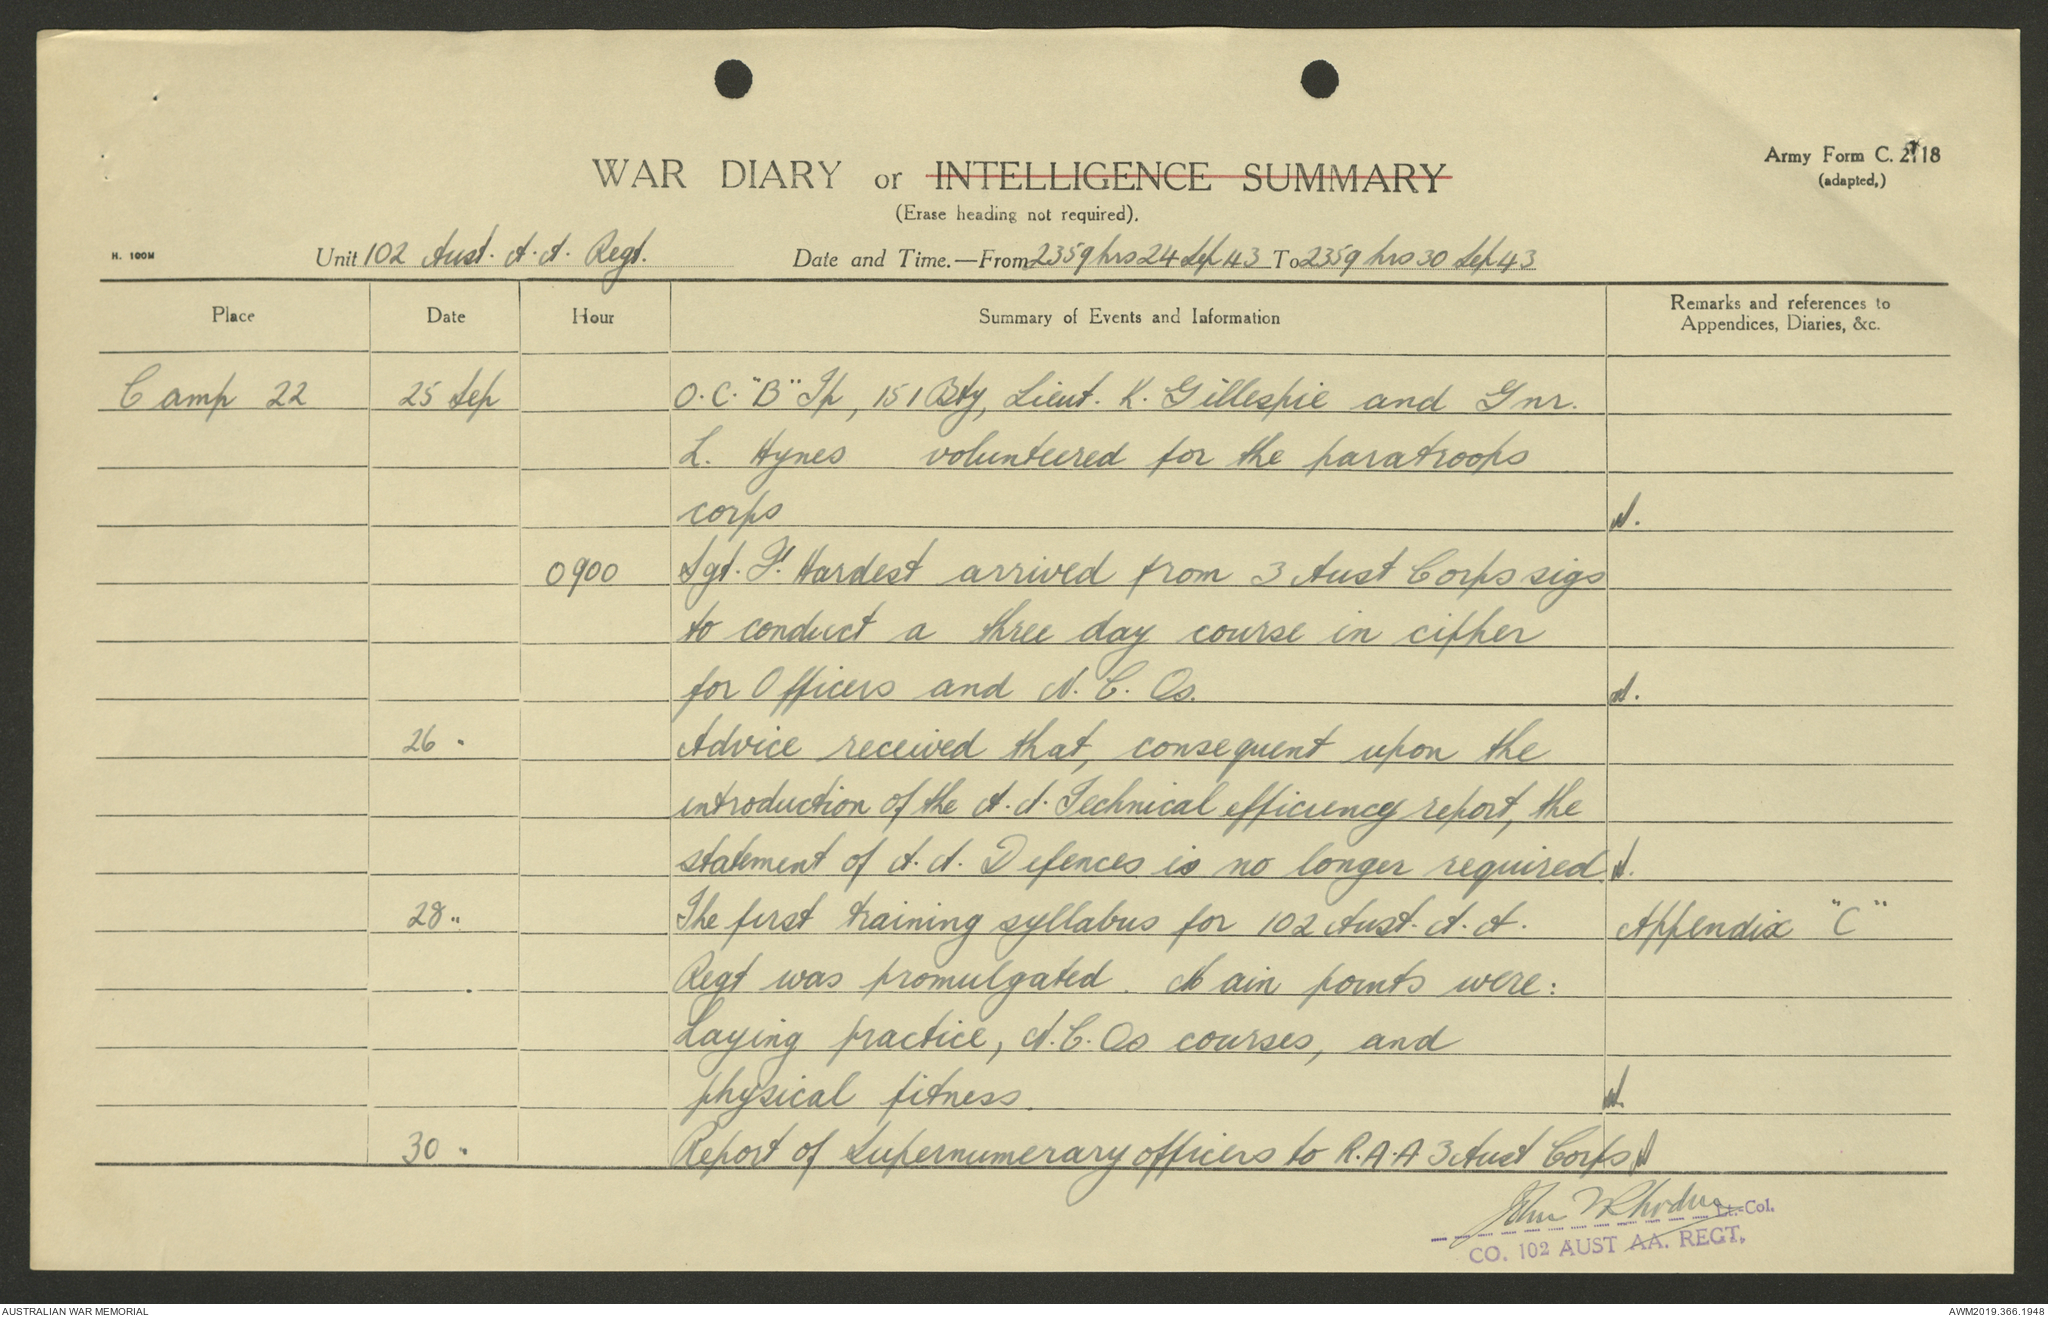 Army Form C. 2118
(adapted,)
WAR DIARY or INTELLIGENCE SUMMARY
(Erase heading not required).
H. 100M
Unit 102 Aust. A.A. Regt. Date and Time.—From 2359 hrs 24 Sep 43 To 2359 hrs 30 Sep 43
Place Date Hour Summary of Events and Information Remarks and references to
Appendices, Diaries, &c.
Camp 22 25 Sep O.C. "B" Tp, 151 Bty, Lieut. K. Gillespie and Gnr.
L. Hynes volunteered for the paratroops
corps
0900 Sgt. F. Hardest arrived from 3 Aust Corps sigs
to conduct a three day course in cipher
for Officers and N.C.Os.
26 " Advice received that, consequent upon the
introduction of the A.A. Technical efficiency report, the
statement of A.A. Defences is no longer required
28 " The first training syllabus for 102 Aust. A.A. Appendix "C"
Regt was promulgated. Main points were:
Laying practice, N.C.Os courses, and
physical fitness.
30 " Report of Supernumerary officers to R.A.A 3 Aust Corps
John Rhodes Lt.-Col.
CO. 102 AUST AA. REGT.
AUSTRALIAN WAR MEMORIAL AWM2019.366.1948